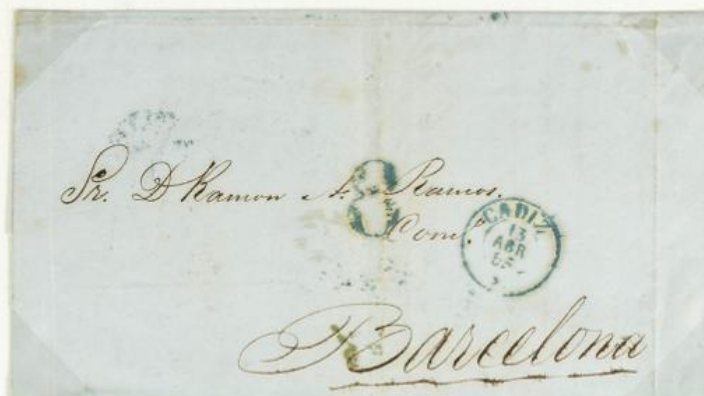 Sr. D Ramon A. Ramos.
8
Com.º
CADIZ
13
ABR
Barcelona